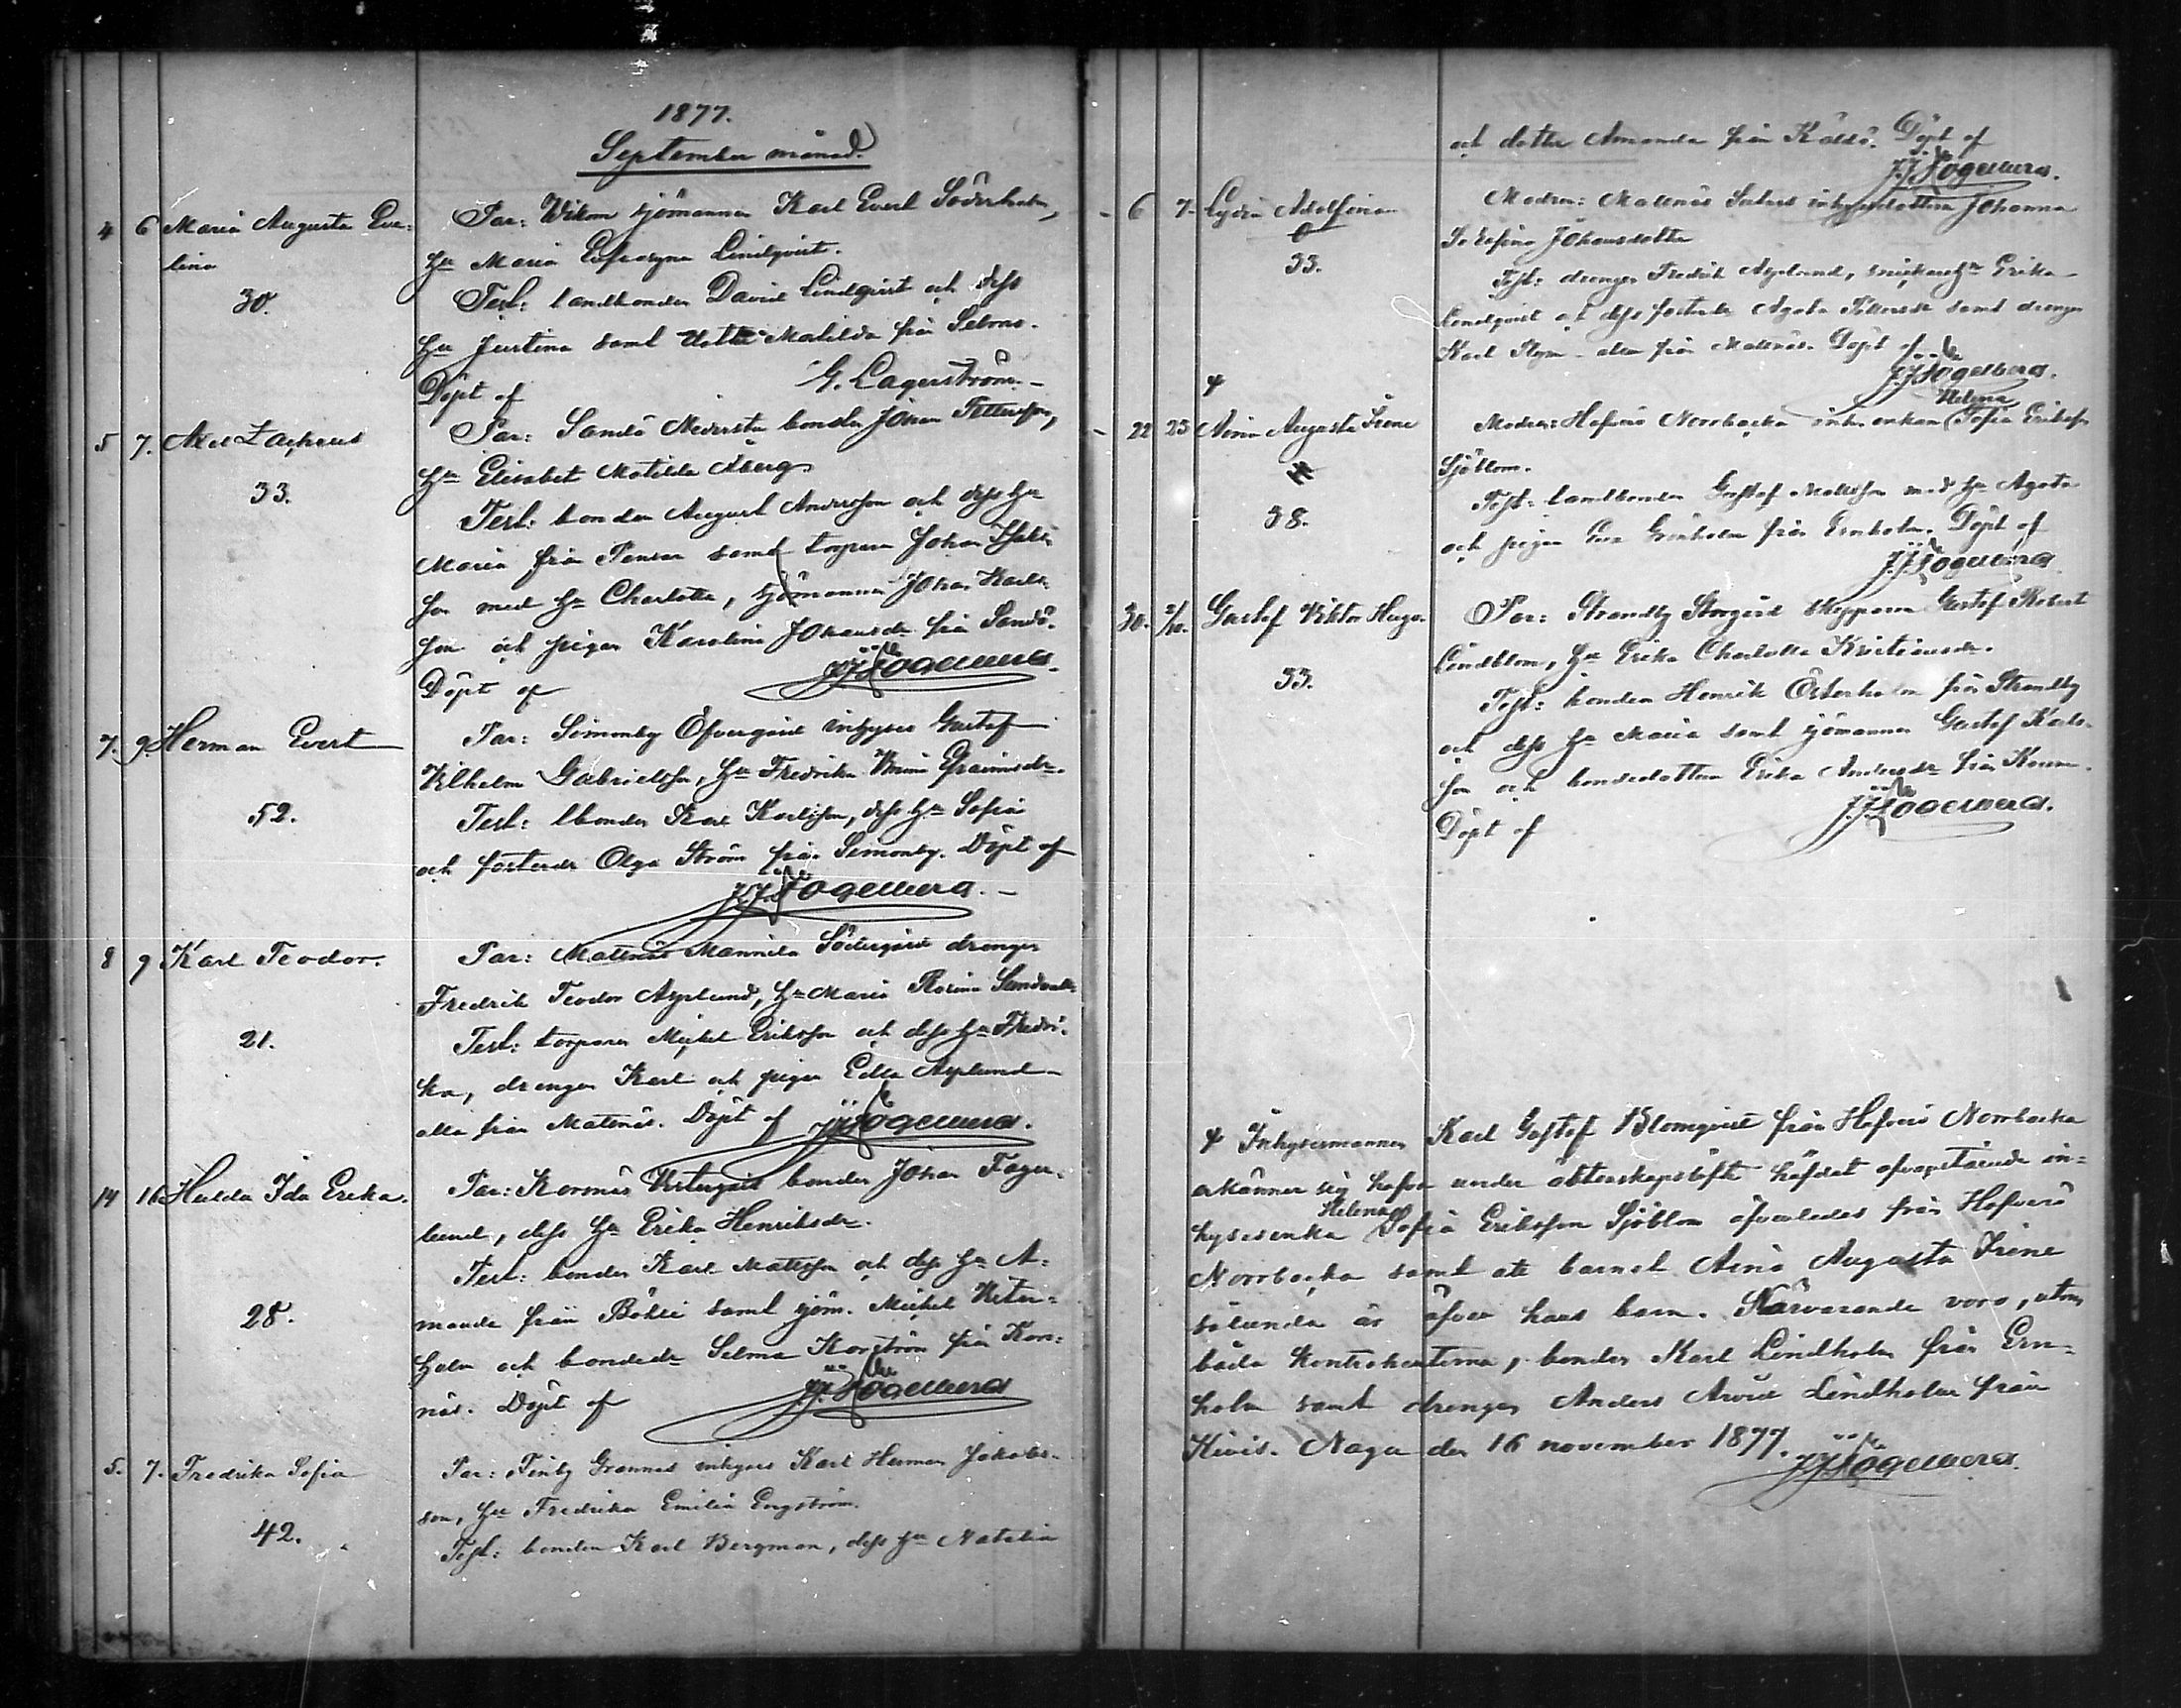 1877.
September månad.
4 6 Maria Augusta Eve-
lina
30.
Par: Wikom sjömannen Karl Evert Söderholm,
hu Maria Eufrosyna Lindqvist.
Test: landbonden David Lindqvist och dess
hu Justina samt dotter Matilda från Selmo.
Döpt af G. Lagerström.
5 7. Axel Zacheus
33.
Par: Sandö Nedersta bonden Johan Pettersson,
hu Elisabet Matilda Åberg
Test: bonden August Andersson och dess hu
Maria från Pensar samt torparen Johan
son med hu Charlotta, sjömannen Johan Karls-
son och pigan Karolina Johansdr från Sandö.
Döpt af J.J. Fogelberg.
7. 9. Herman Evert
52.
Par: Simonby Öfvergård inhyses Gustaf
Vilhelm Gabrielsson, hu Fredrika Efraimsdr.
Test: bonden Karl Karlsson, dess hu Sofia
och fosterdr Olga Ström från Simonby. Döpt af
J.J. Fogelberg.
8 9 Karl Teodor.
21.
Par: Mattnäs Mannila Södergård drengen
Fredrik Teodor Asplund, hu Maria Rosina
Test: torparen Mickel Eriksson och dess hu Fredri-
ka, drengen Karl och pigan Edla Asplund
alla från Mattnäs. Döpt af J.J. Fogelberg.
14 16 Hulda Ida Erika.
28.
Par: Kornäs Vestergård bonden Johan Fager-
lund, dess hu Erika Henriksdr.
Test: bonden Karl Mattsson och dess hu A-
manda från samt sjöm. Mickel Vester-
holm och bondedr Selma Korström från Kor-
näs. Döpt af J.J. Fogelberg
5. 7. Fredrika Sofia
42.
Par: Finby Grannas inhyses Karl Herman Jakobs-
son, hu Fredrika Emilia Engström.
Test: bonden Karl Bergman, dess hu Natalia
och dotter Amanda från Käldö. Döpt af
J.J. Fogelberg.
6 7 Lydia Adolfina
33.
Modren: Mattnäs inhysesdottren Johanna
Josefina Johansdotter
Test: drengen Fredrik Asplund, snickarehu Erika
Lindqvist och dess fosterdr Agata samt drengen
Karl alla från Mattnäs. Döpt af
J.J. Fogelberg.
22 23 Aina Augusta Irene
38.
Helena
Modren: Hafverö Norrbacka inh. enkan Sofia Eriksson
Sjöblom.
Test: landbonden Gustaf Mattsson med hu Agata
och pigan Eva Grönholm från Ernholm. Döpt af
J.J. Fogelberg
30. 2/10. Gustaf Viktor Hugo.
33.
Par: Strandby Storgård skepparen Gustaf Robert
Lindblom, hu Erika Charlotta Kristiansdr.
Test: bonden Henrik Österholm från Strandby
och dess hu Maria samt sjömannen Gustaf Karls-
son och bondedottren Erika Andersdr från
Döpt af J.J. Fogelberg.
Inhysesmannen Karl Gustaf Blomqvist från Hafverö Norrbacka
erkänner sig hafva under äktenskapslöfte häfdat ofvanstående in-
Helena
hysesenka Sofia Eriksson Sjöblom äfvenledes från Hafverö
Norrbacka samt att barnet Aina Augusta Irene
sålunda är äfven hans barn. Närvarande voro, utom
båda kontrahenterna, bonden Karl Lindholm från Ern-
holm samt drengen Anders Arvid Lindholm från
Kivis. Nagu den 16 november 1877.
J.J. Fogelberg